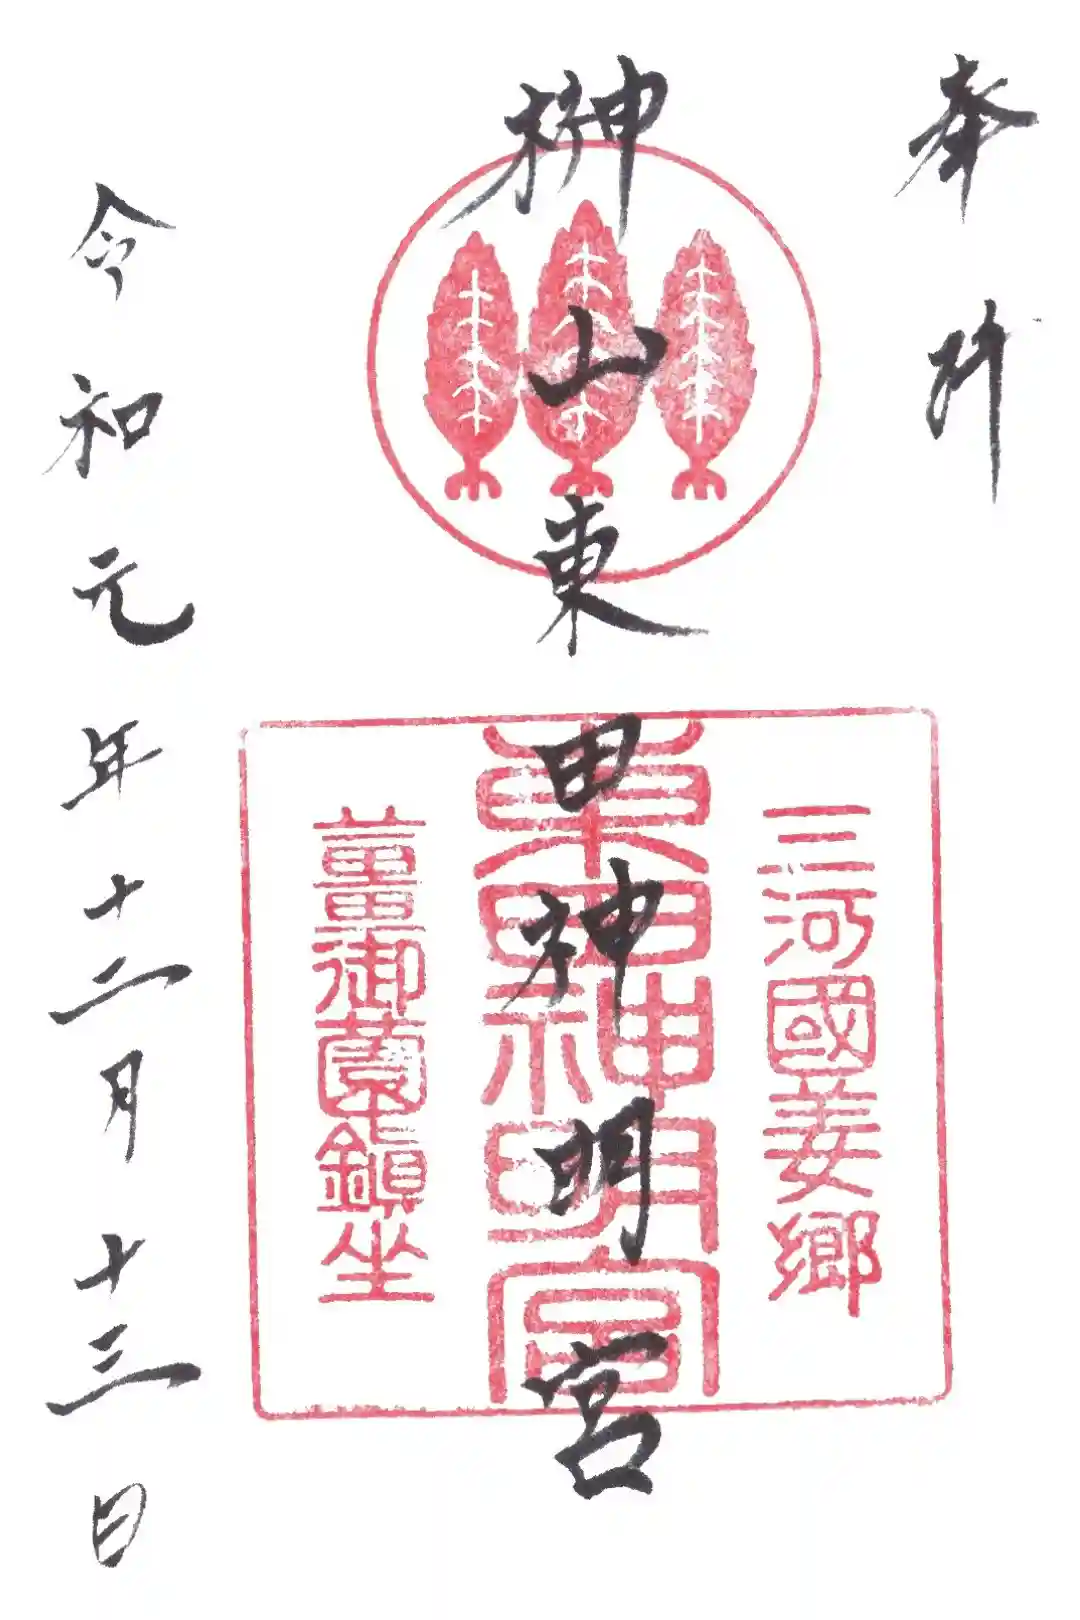 奉拝
榊山東田神明宮
三河國姜郷
東田神明宮
薑御薗鎭坐
令和元年十二月十三日